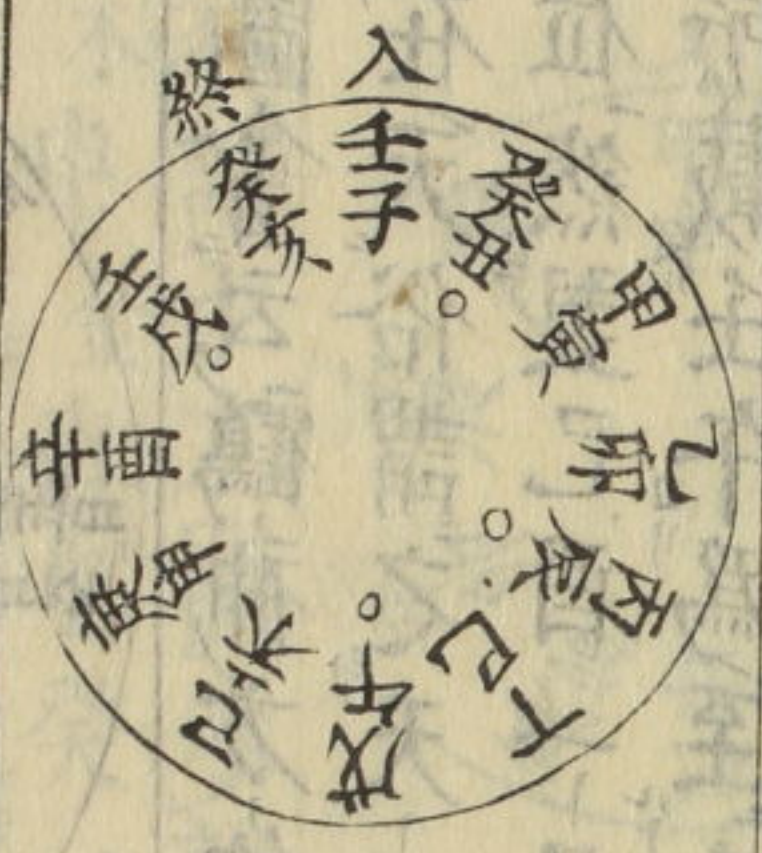 入
壬子
癸丑○
甲寅
乙卯
丙辰○
丁巳
戊午○
己未
庚申
辛酉
壬戌○
癸亥
終